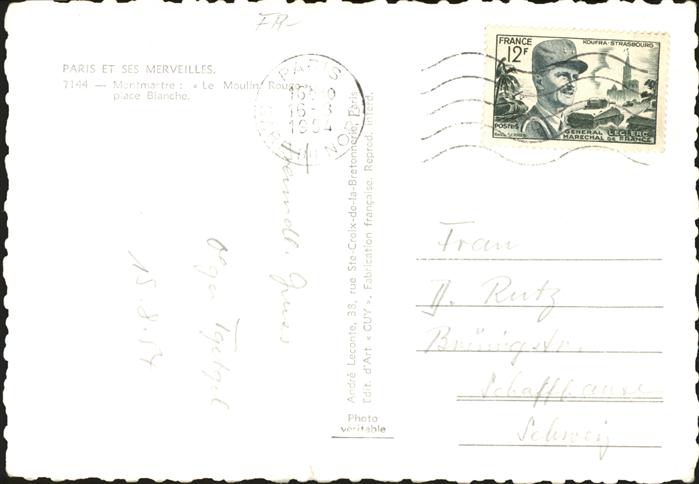 FR-
PARIS ET SES MERVEILLES.
7144 — Montmartre : « Le Moulin Rouge »
place Blanche.
PARIS
FRANCE
12F
KOUFRA-STRASBOURG
POSTES
GENERAL LECLERC
MARECHAL DE FRANCE
Freundl. Gruss
Olga
15.8.54
André Leconte, 38, rue Ste-Croix-de-la-Bretonnerie, Paris
Edit. d'Art « GUY ». Fabrication française. Reprod. interd.
Photo
véritable
Frau
Rutz
Brüningstr.
Schaffhausen
Schweiz